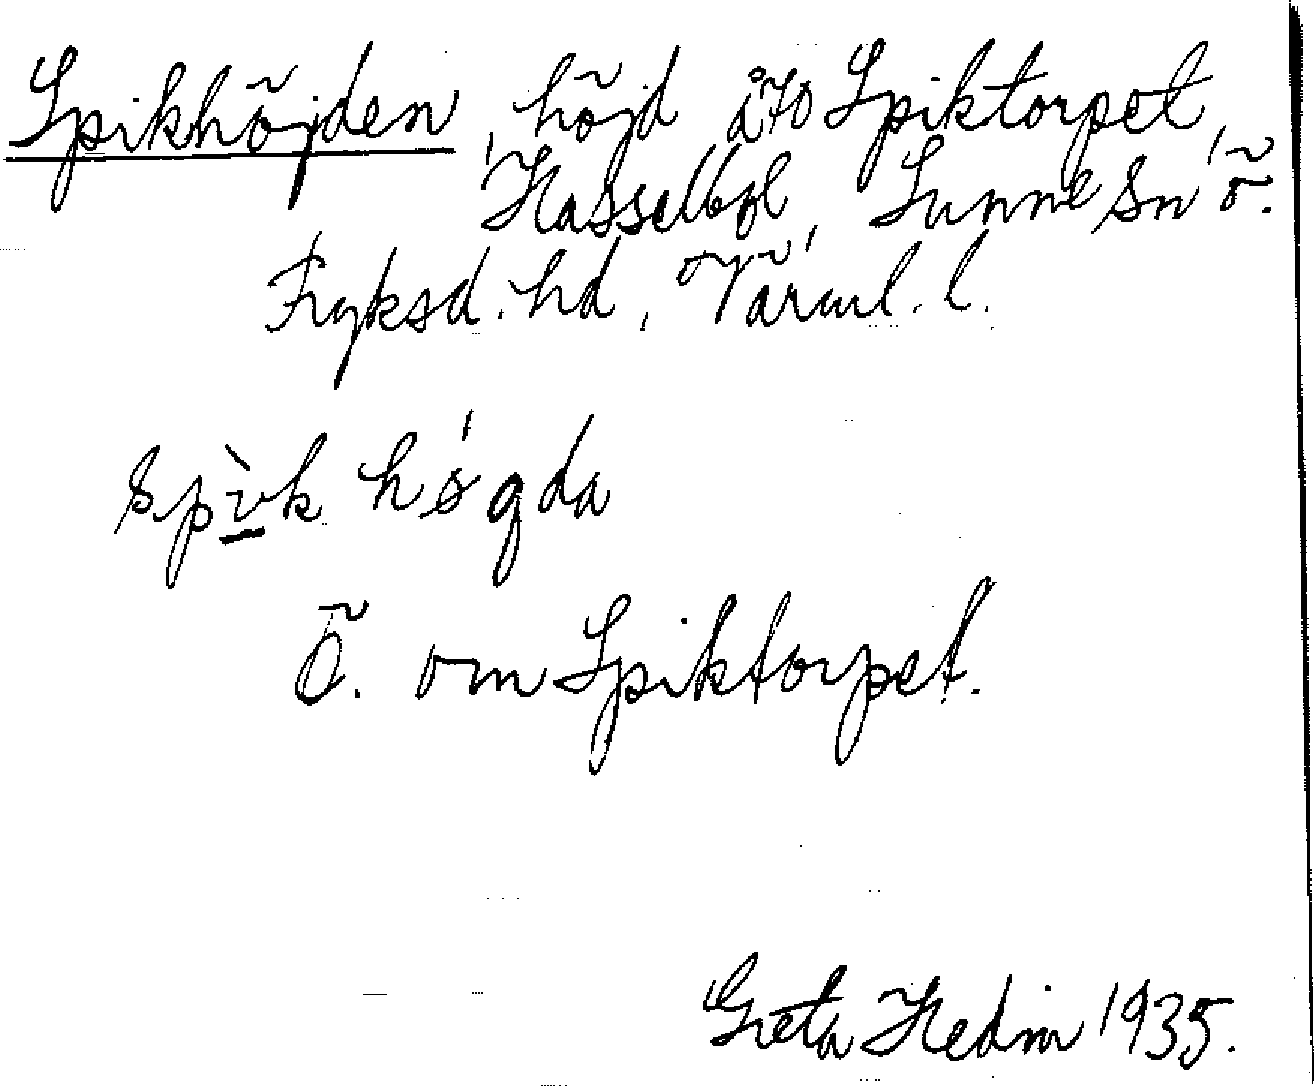 Spikhöjden, höjd åro Spiktorpet,
Hasselbol, Sunne sn, ö.
Fryksd. hd, Värml. l.
spìk høgda
Ö. om Spiktorpet.
Greta Hedin 1935.